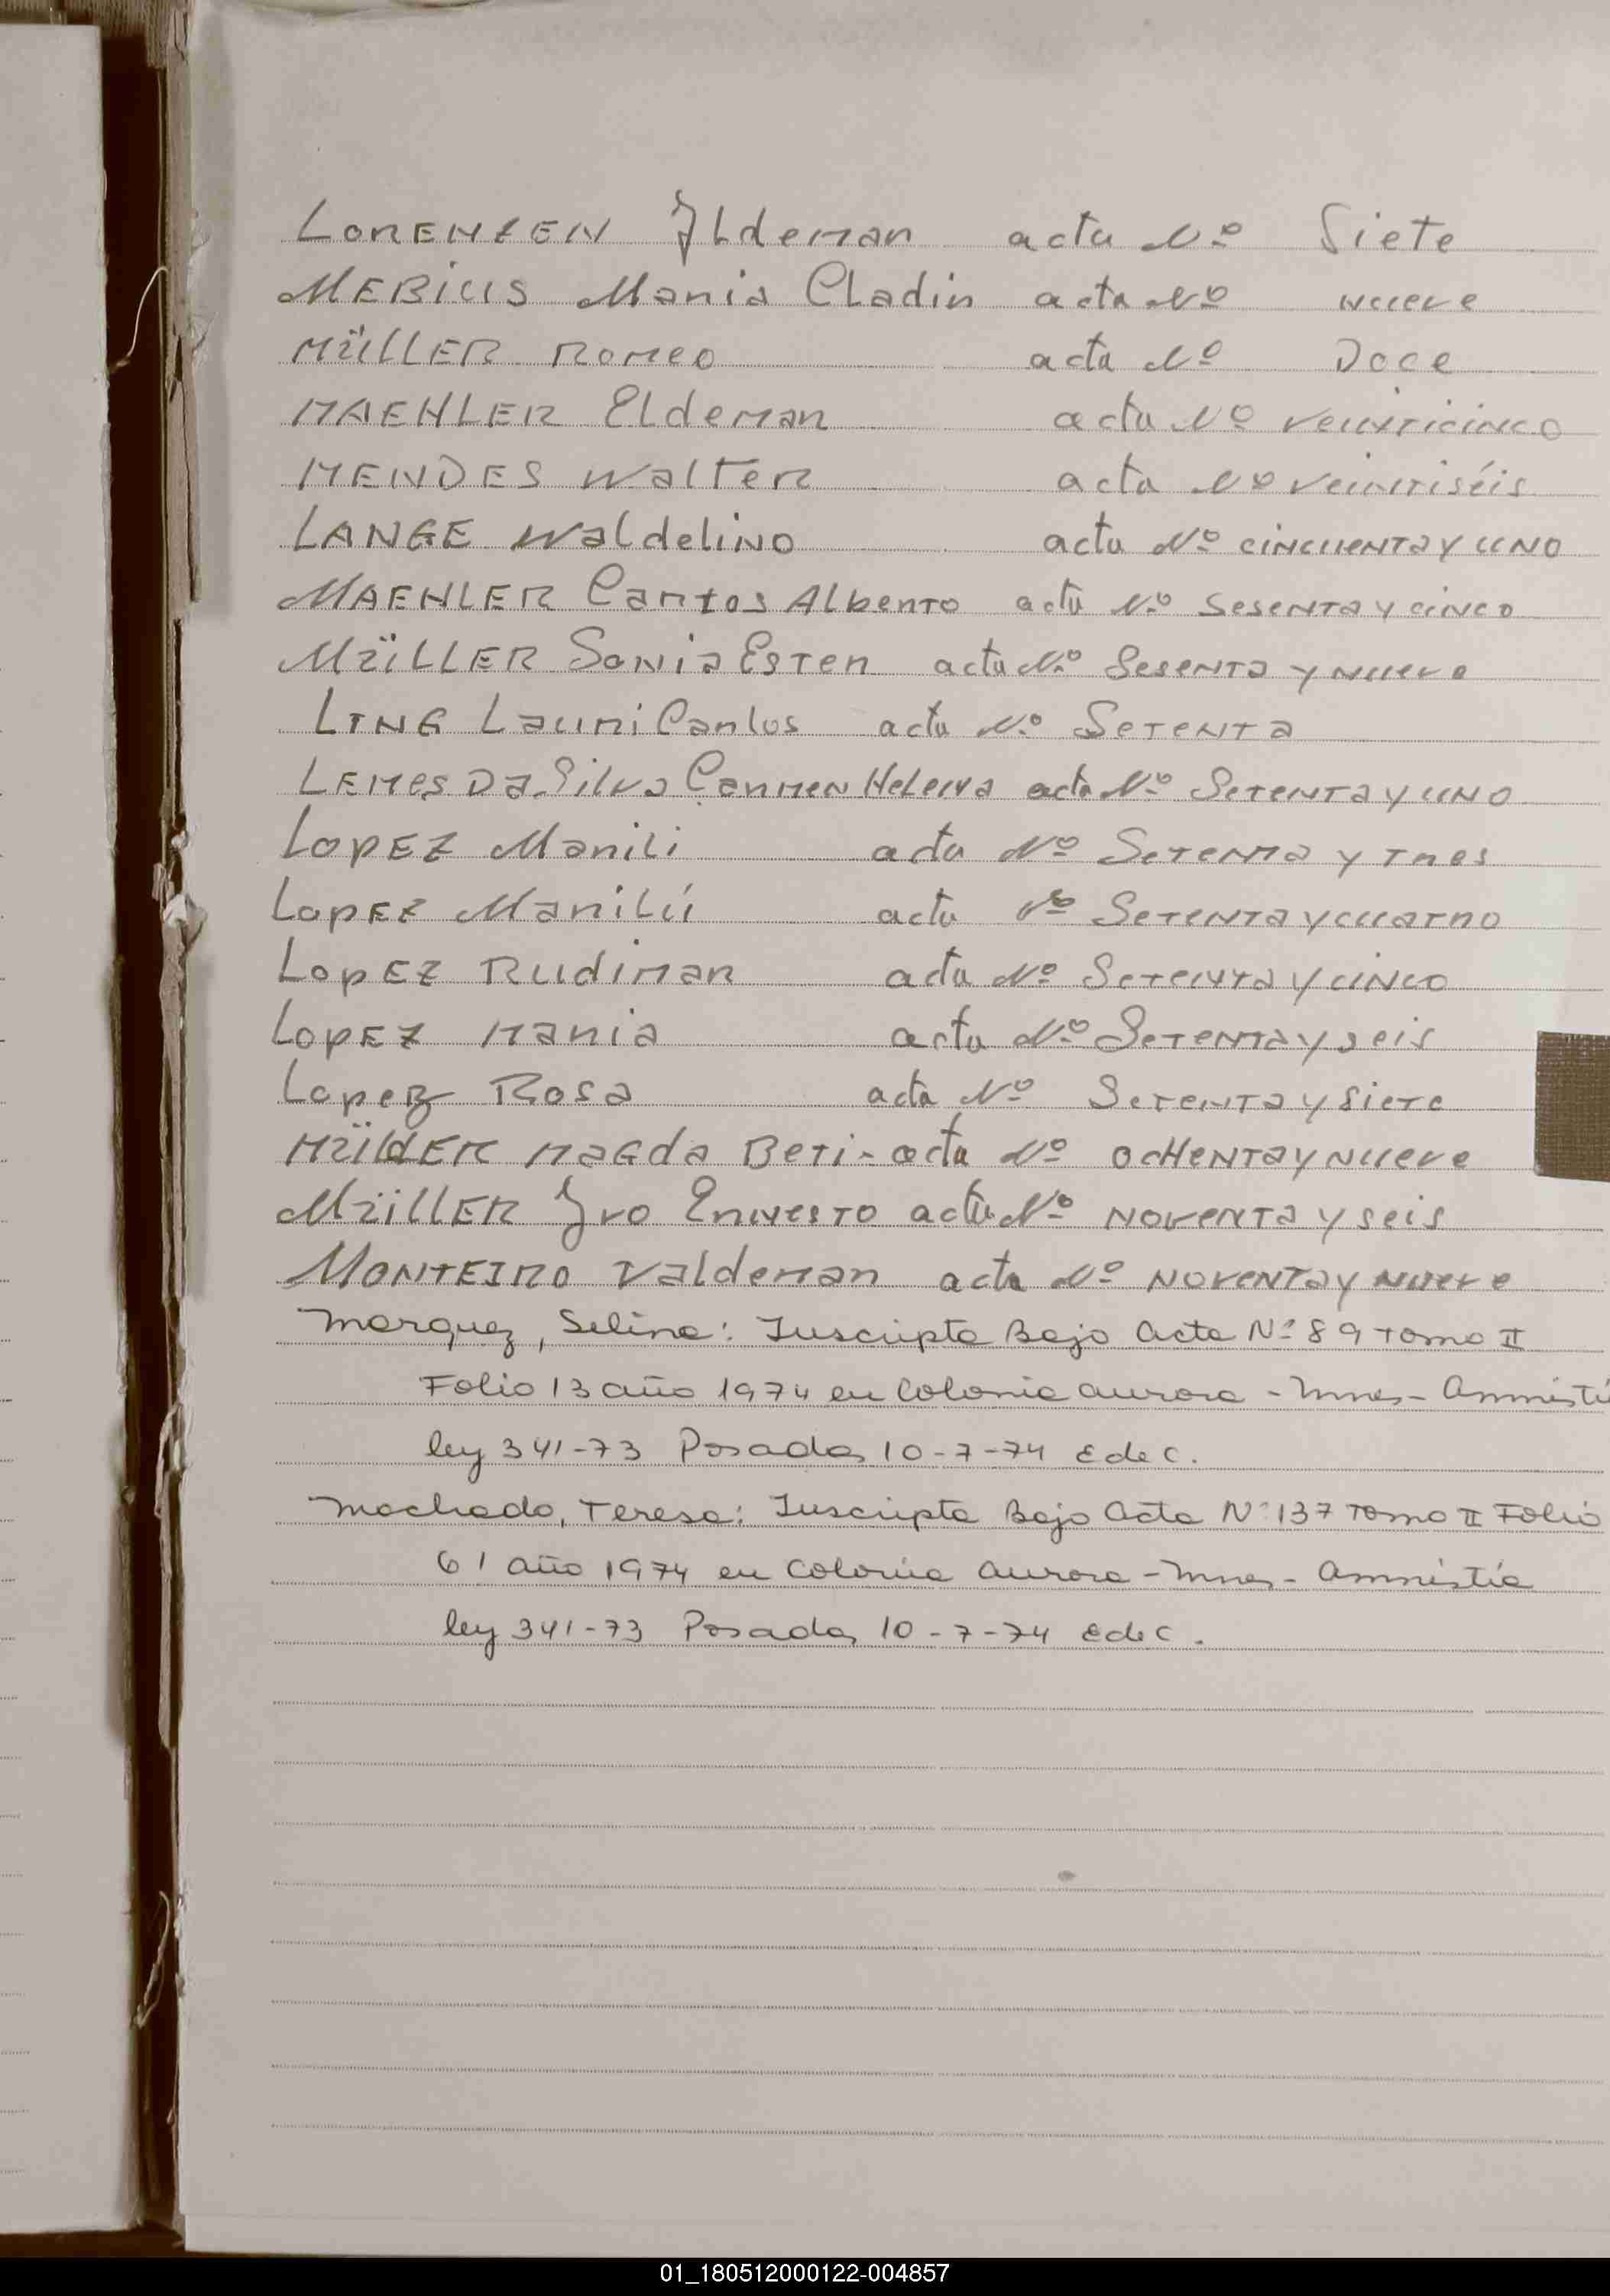 LORENZEN Ildemar acta Nº Siete
MEBIUS Maria Cladis acta Nº nueve
MÜLLER Romeo acta Nº Doce
MAEHLER Eldemar acta Nº veinticinco
MENDES Walter acta Nº veintiséis
LANGE Waldelino acta Nº cincuenta y uno
MAEHLER Carlos Alberto acta Nº sesenta y cinco
MÜLLER Sonia Ester acta Nº Sesenta y nueve
LING Lauri Carlos acta Nº Setenta
LEMES Da Silva Carmen Helena acta Nº Setenta y uno
LOPEZ Marili acta Nº Setenta y tres
LOPEZ Marilú acta Nº Setenta y cuatro
LOPEZ Rudimar acta Nº Setenta y cinco
LOPEZ Maria acta Nº Setenta y seis
Lopez Rosa acta Nº Setenta y Siete
MÜLLER Magda Beti - acta Nº ochenta y nueve
MÜLLER Ivo Ernesto acta Nº noventa y seis
MONTEIRO Valdemar acta Nº noventa y nueve
Marquez, Selina: Inscripta Bajo Acta Nº 89 tomo II
Folio 13 año 1974 en Colonia Aurora - Mnes - Amnistí
ley 341-73 Posadas 10-7-74 EdeC.
Machado, Teresa: Inscripta Bajo Acta Nº 137 Tomo II Folio
61 año 1974 en Colonia Aurora - Mnes - Amnistía
ley 341-73 Posadas 10-7-74 EdeC.
01_180512000122-004857